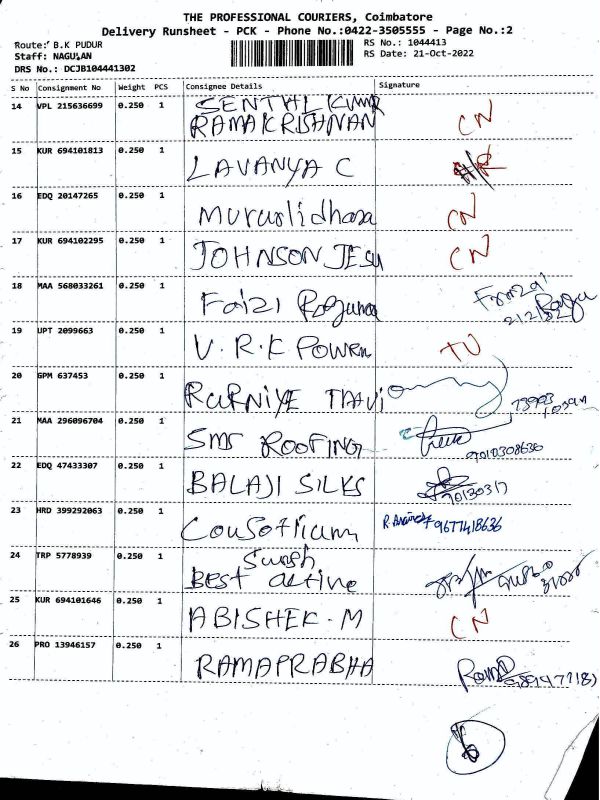 THE PROFESSIONAL COURIERS, Coimbatore
Delivery Runsheet - PCK - Phone No.:0422-3505555 - Page No.:2
Route: B.K PUDUR
RS No.: 1044413
Staff: NAGULAN
RS Date: 21-Oct-2022
DRS No.: DCJB104441302
S No Consignment No Weight PCS Consignee Details Signature
14 VPL 215636699 0.250 1 SENTHIL KUMAR
RAMAKRISHNAN CN
15 KUR 694101813 0.250 1 LAVANYA C
16 EDQ 20147265 0.250 1 Muruslidhasa CN
17 KUR 694102295 0.250 1 JOHNSON JESU CN
18 MAA 568033261 0.250 1 Faizi
19 UPT 2099663 0.250 1 V.R.K POWER
20 GPM 637453 0.250 1
21 MAA 296096704 0.250 1 SMS ROOFING
22 EDQ 47433307 0.250 1 BALAJI SILKS
23 HRD 399292063 0.250 1 9677418636
24 TRP 5778939 0.250 1 BEST active
25 KUR 694101646 0.250 1 ABISHEK.M CN
26 PRO 13946157 0.250 1 RAMAPRABHA